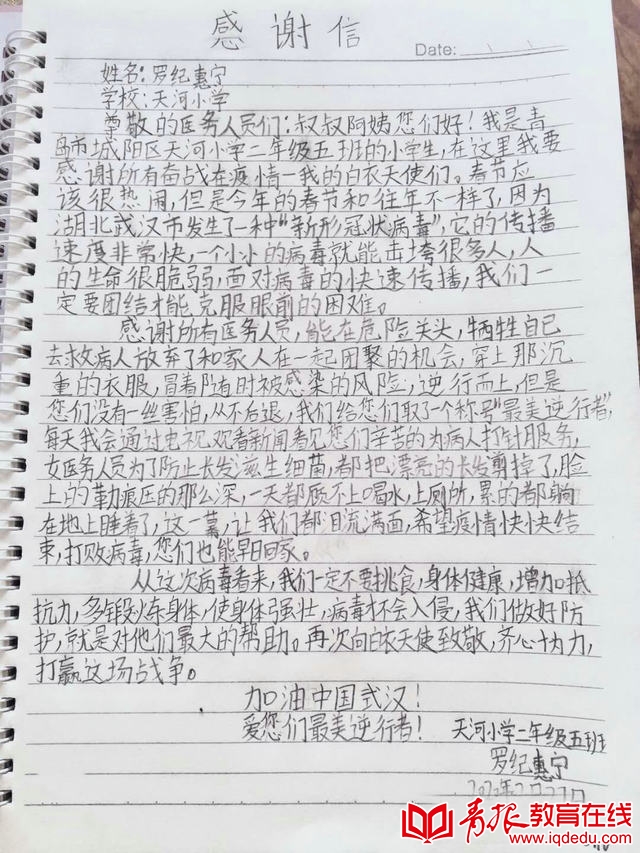 感谢信
Date:
姓名:罗纪惠宁
学校:天河小学
尊敬的医务人员们:叔叔阿姨您们好!我是青
岛市城阳区天河小学二年级五班的小学生,在这里我要
感谢所有奋战在疫情一线的白衣天使们。春节应
该很热闹,但是今年的春节和往年不一样了,因为
湖北武汉市发生了一种“新形冠状病毒”,它的传播
速度非常快,一个小小的病毒就能击垮很多人,人
的生命很脆弱,面对病毒的快速传播,我们一
定要团结才能克服眼前的困难。
感谢所有医务人员,能在危险关头,牺牲自己
去救病人放弃了和家人在一起团聚的机会,穿上那沉
重的衣服,冒着随时被感染的风险,逆行而上,但是
您们没有一丝害怕,从不后退,我们给您们取了一个称号“最美逆行者”,
每天我会通过电视观看新闻看见您们辛苦的为病人打针服务,
女医务人员为了防止长发滋生细菌,都把漂亮的长发剪掉了,脸
上的勒痕压的那么深,一天都顾不上喝水,上厕所,累的都躺
在地上睡着了,这一幕,让我们都泪流满面,希望疫情快快结
束,打败病毒,您们也能早日回家。
从这次病毒看来,我们一定不要挑食,身体健康,增加抵
抗力,多锻炼身体,使身体强壮,病毒才不会入侵,我们做好防
护,就是对他们最大的帮助。再次向白衣天使致敬,齐心协力,
打赢这场战争。
加油中国武汉!
爱您们最美逆行者!
天河小学二年级五班
罗纪惠宁
2020年2月27日
青报教育在线
www.iqdedu.com